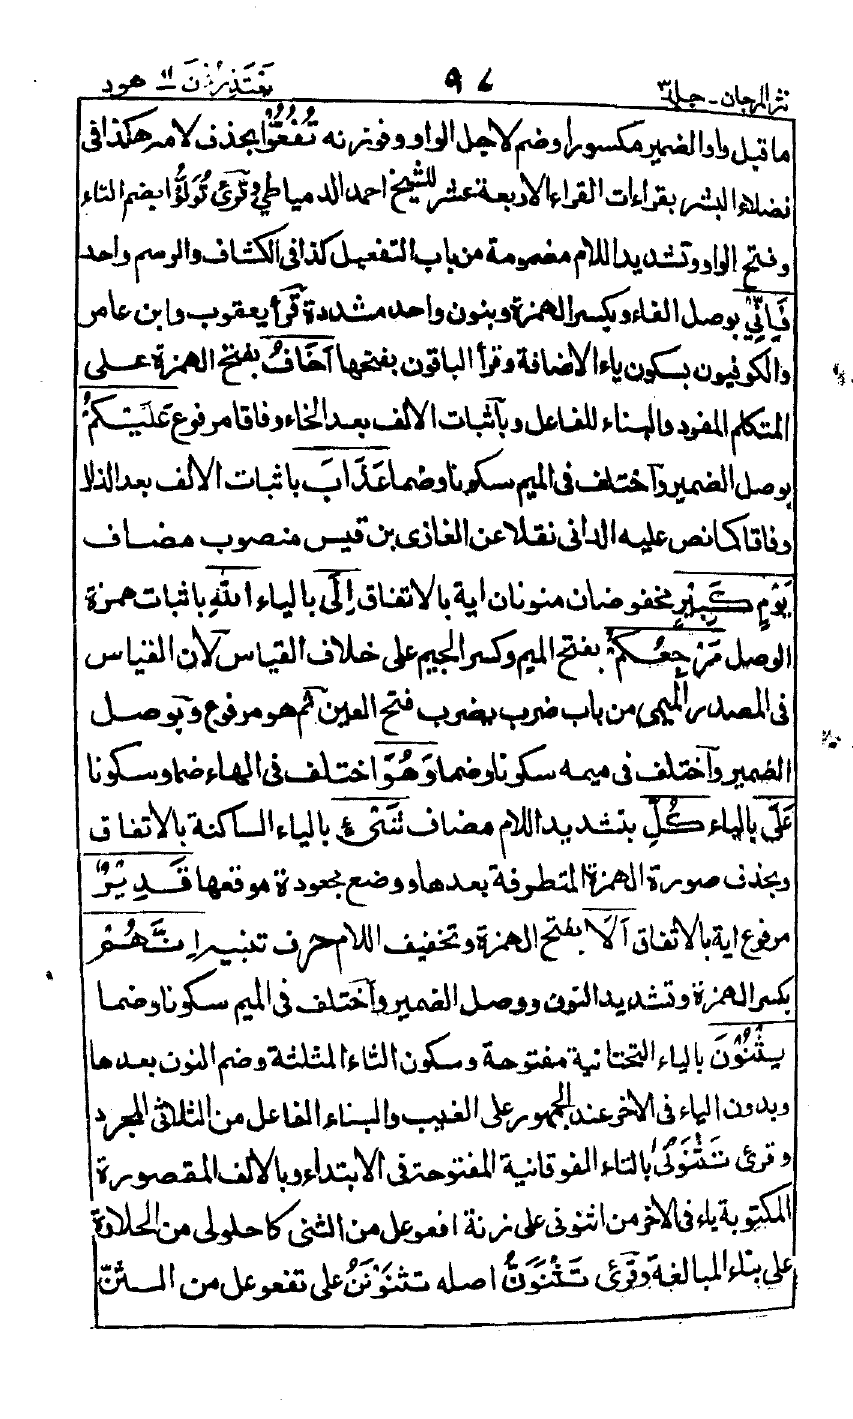 نثر المرجان - جلد ٣ ٩٧ يعتذرون ١١ هود
ما قبل واو الضمير مكسورا وضم لاجل الواو وفوزنه تُفَعُّوا بحذف لامه هكذا فى
فضلاء البشر بقراءات القراء الاربعة عشر للشيخ احمد الدمياطى وقرئ تُوَلُّوا بضم التاء
وفتح الواو وتشديد اللام مضمومة من باب التفعيل كذا فى الكشاف والرسم واحد
فَاِنِّىْ بوصل الفاء وبكسر الهمزة وبنون واحد مشددة قرأ يعقوب وابن عامر
والكوفيون بسكون ياء الاضافة وقرأ الباقون بفتحها اَخَافُ بفتح الهمزة على
المتكلم المفرد والبناء للفاعل وبأثبات الالف بعد الخاء وفاقا مرفوع عَلَيْكُمْ
بوصل الضمير وآختلف فى الميم سكونا وضما عَذَابَ باثبات الالف بعد الذال
وفاقا كما نص عليه الدانى نقلا عن الغازى بن قيس منصوب مضاف
يَوْمٍ كَبِيْرٍ مخفوضان منونان اية بالاتفاق اِلَى بالياء اللّٰهِ باثبات همزة
الوصل مَرْجِعُكُمْ بفتح الميم وكسر الجيم على خلاف القياس لان القياس
فى المصدر الميمى من باب ضرب يضرب فتح العين ثم هو مرفوع وبوصل
الضمير وآختلف فى ميمه سكونا وضما وَهُوَ اختلف فى الهاء ضما وسكونا
عَلٰى بالياء كُلِّ بتشديد اللام مضاف شَىْءٍ بالياء الساكنة بالاتفاق
وبحذف صورة الهمزة المتطرفة بعدها ووضع مجعودة موقعها قَدِيْرٌ
مرفوع اية بالاتفاق اَلَا بفتح الهمزة وتخفيف اللام حرف تنبيه اِنَّهُمْ
بكسر الهمزة وتشديد النون ووصل الضمير وآختلف فى الميم سكونا وضما
يَثْنُوْنَ بالياء التحتانية مفتوحة وسكون الثاء المثلثة وضم النون بعدها
وبدون الياء فى الاخر عند الجمهور على الغيب والبناء الفاعل من الثلاثى المجرد
وقرئ تَثْنَوْنٰى بالتاء الفوقانية المفتوحة فى الابتداء وبالالف المقصورة
المكتوبة ياء فى الاخر من اثنونى على زنة افعوعل من الثنى كاحلولى من الحلاوة
على بناء المبالغة وقرئ تَثْنَوَنُّ اصله تثنَوْنَنُ على تفعوعل من الثنّ